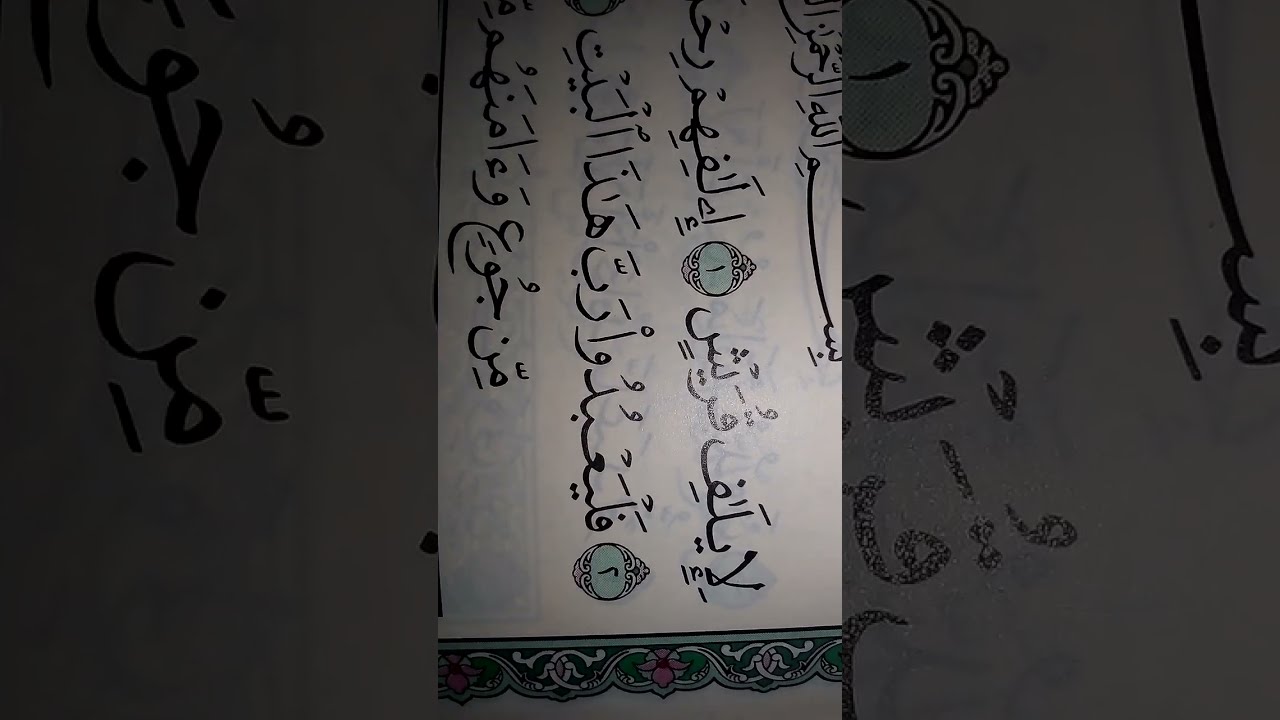 بِسْمِ اللَّهِ الرَّحْمَٰنِ
لِإِيلَٰفِ قُرَيْشٍ ١ إِۦلَٰفِهِمْ
٢ فَلْيَعْبُدُوا۟ رَبَّ هَٰذَا ٱلْبَيْتِ
مِّن جُوعٍ وَءَامَنَهُم